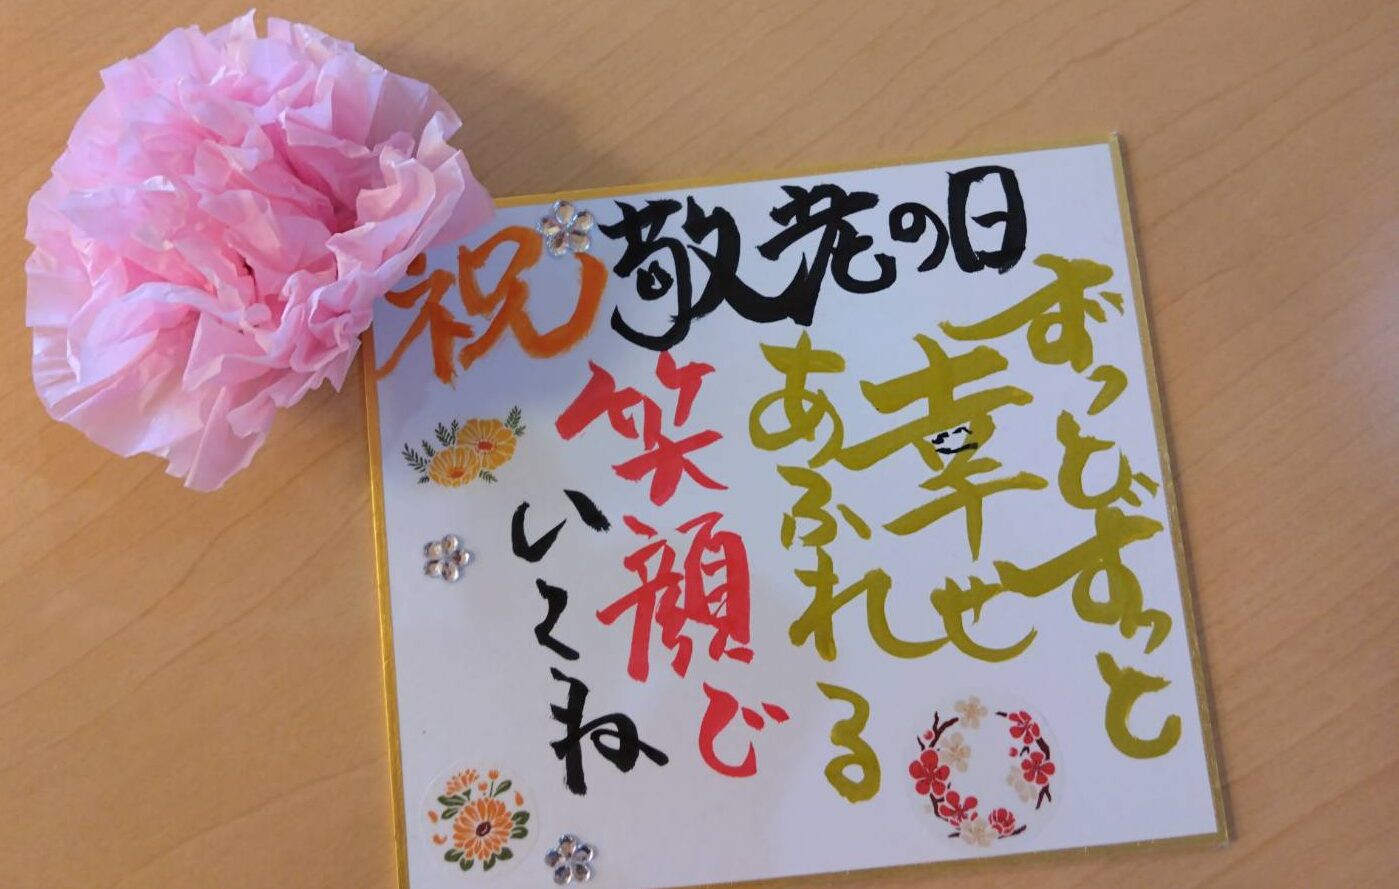 祝 敬老の日
ずっとずっと
幸せ
あふれる
笑顔で
いてね